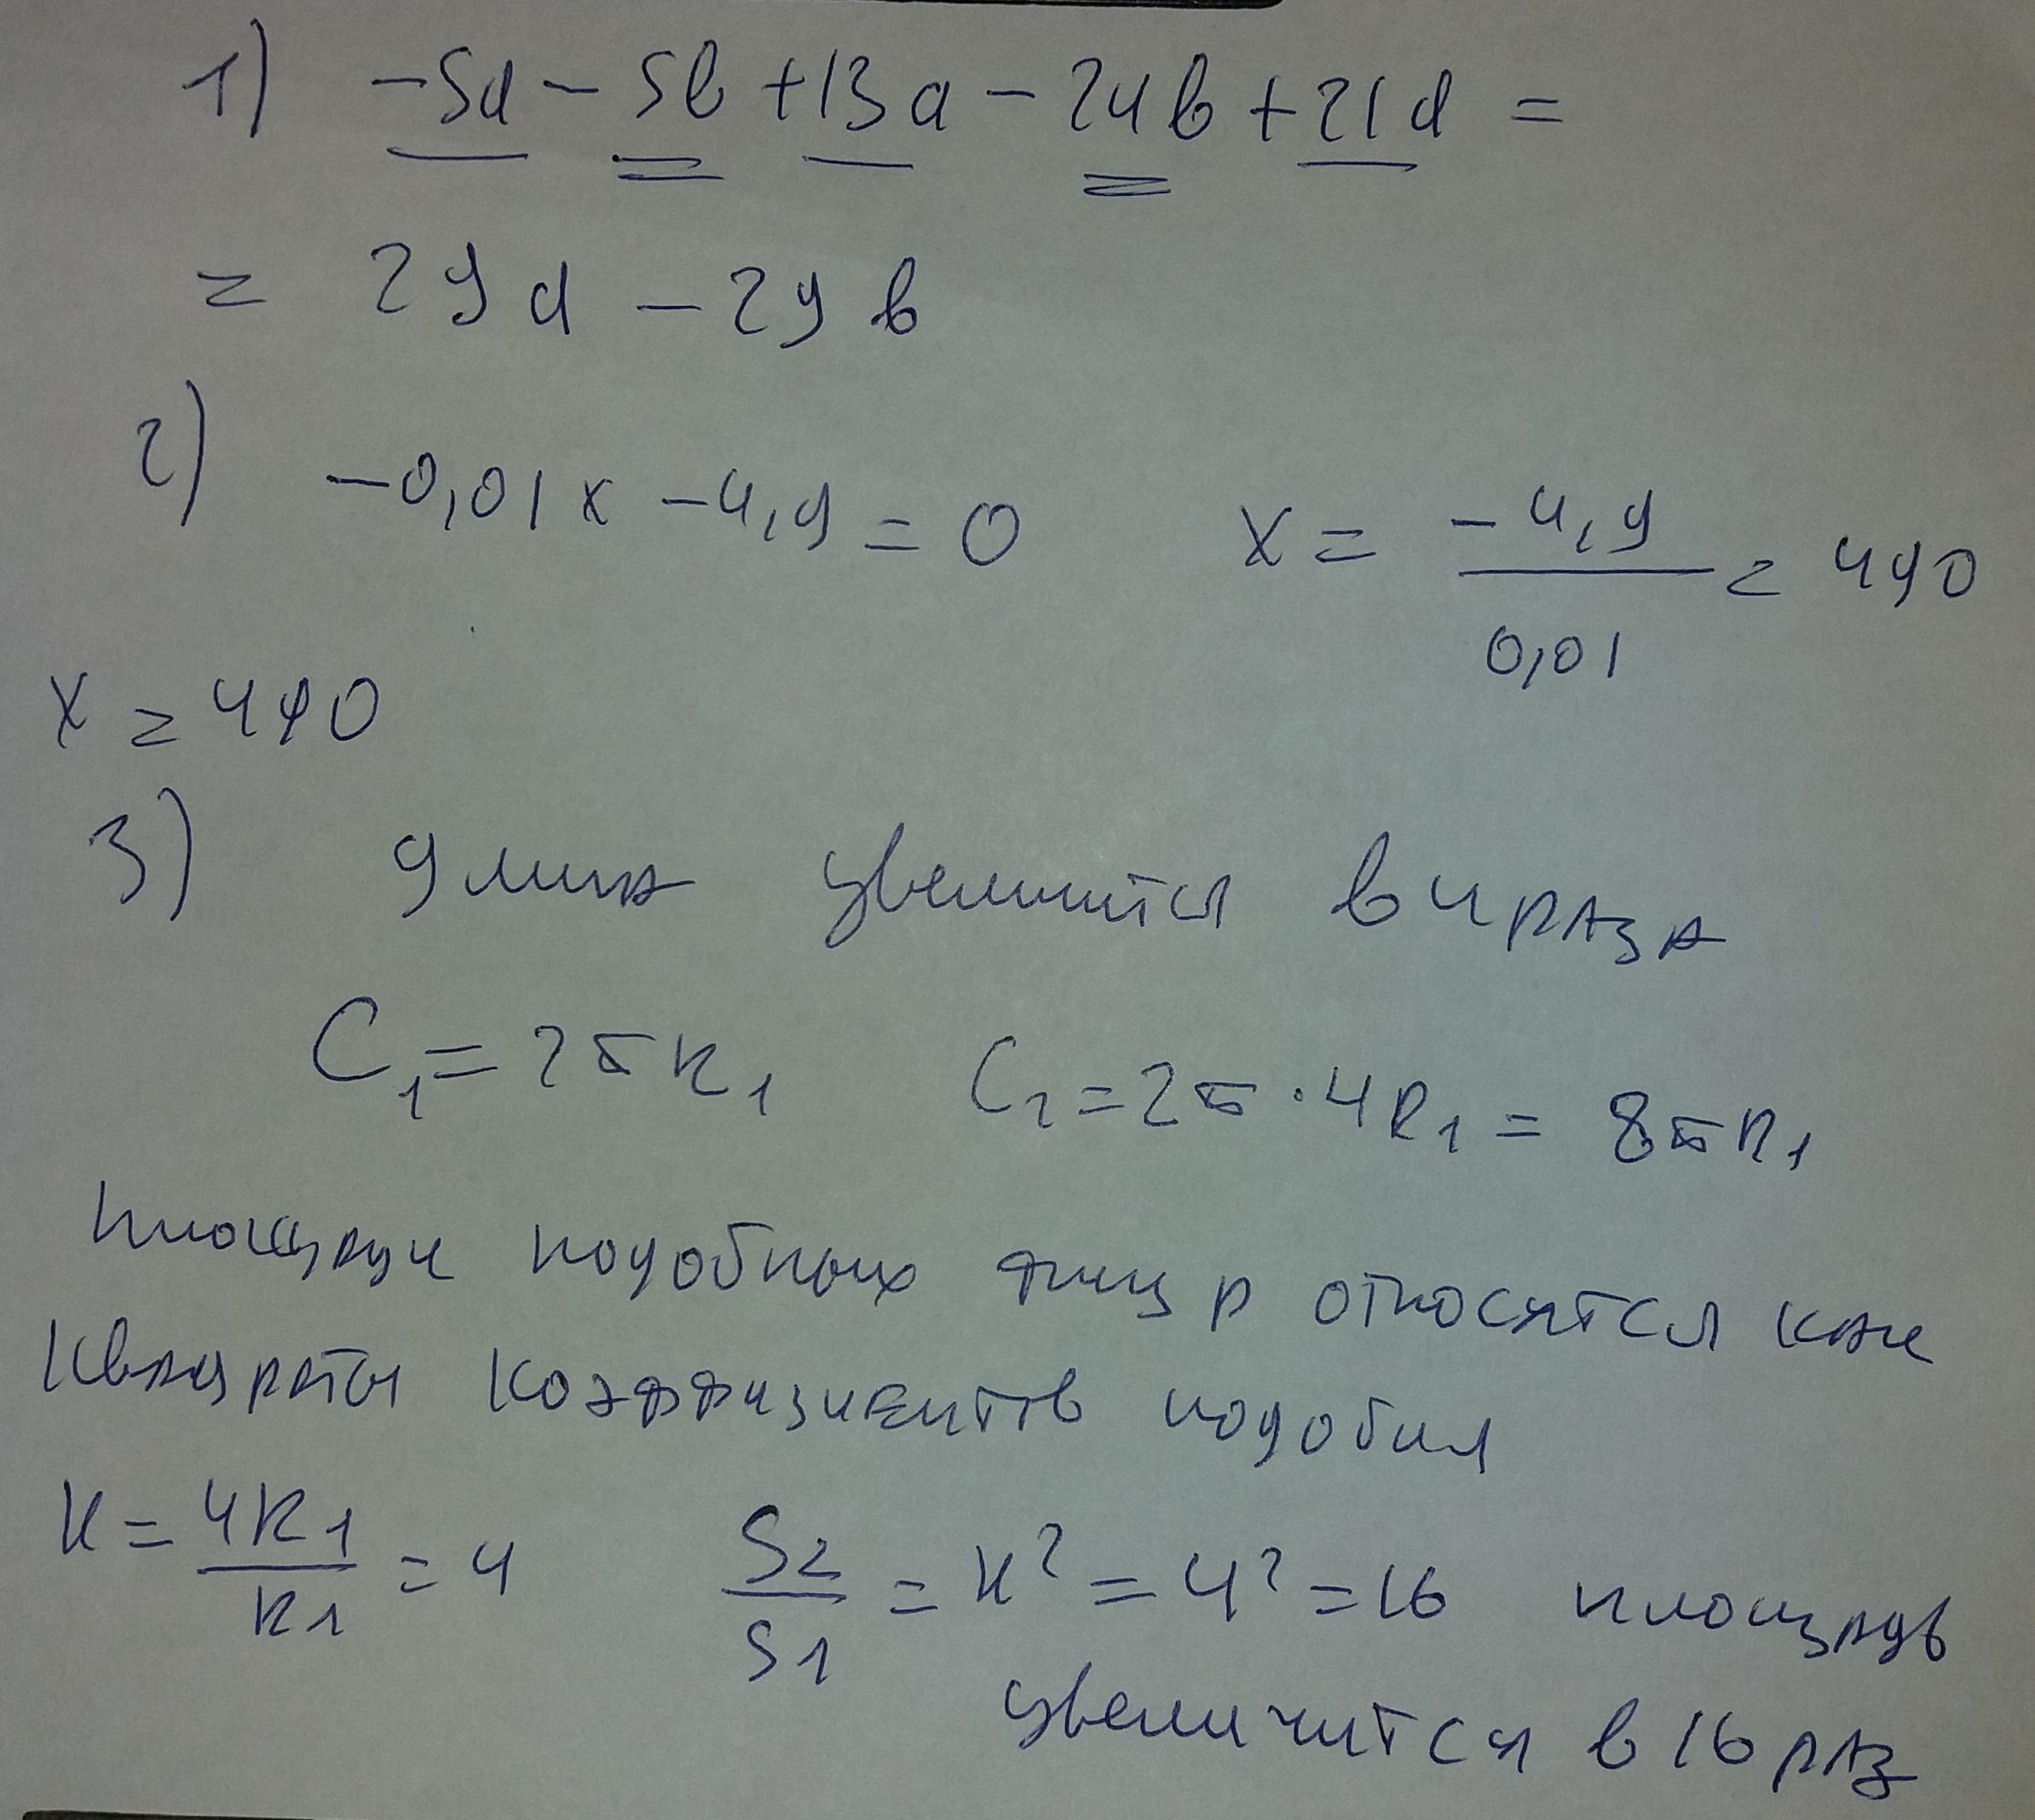 1) -5a - 5b + 13a - 24b + 21a =
= 29a - 29b
2) -0,01x - 4,9 = 0 x = -4,9 / 0,01 = 490
x = 490
3) Длина увеличится в 4 раза
C₁ = 2πR₁ C₂ = 2π · 4R₁ = 8πR₁
площади подобных фигур относятся как
квадраты коэффициентов подобия
K = 4R1 / R1 = 4 S2 / S1 = K² = 4² = 16 площадь
увеличится в 16 раз